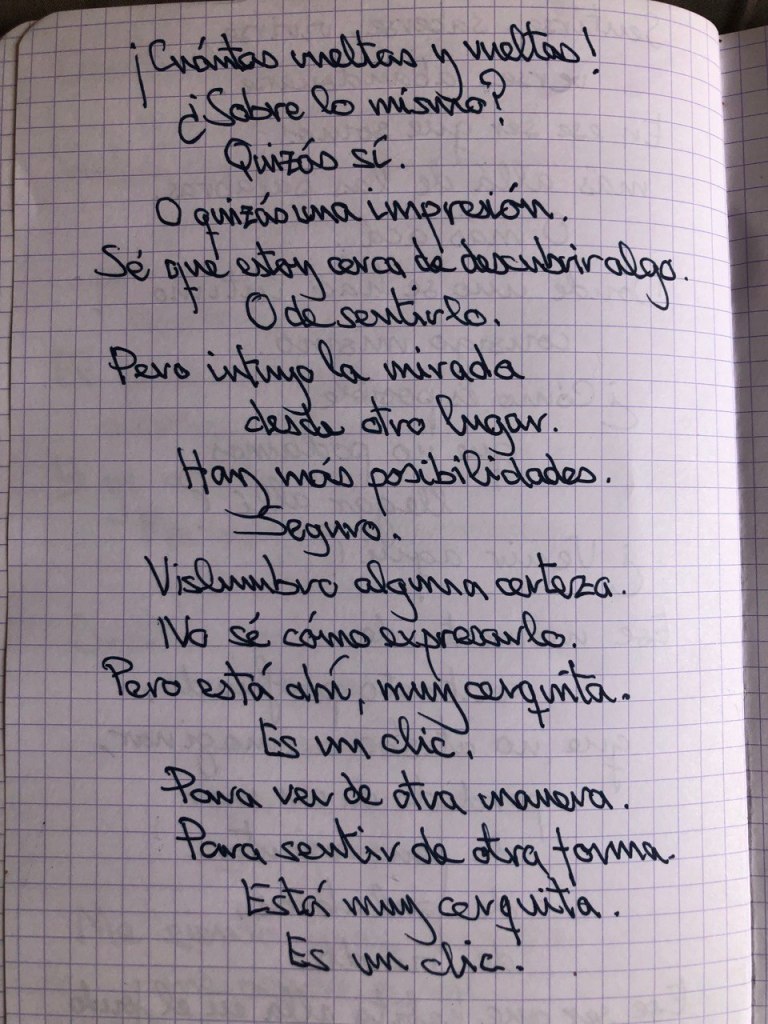 ¡Cuántas vueltas y vueltas!
¿Sobre lo mismo?
Quizás sí.
O quizás una impresión.
Sé que estoy cerca de descubrir algo.
O de sentirlo.
Pero intuyo la mirada
desde otro lugar.
Hay más posibilidades.
Seguro.
Vislumbro alguna certeza.
No sé cómo expresarlo.
Pero está ahí, muy cerquita.
Es un clic.
Para ver de otra manera.
Para sentir de otra forma.
Está muy cerquita.
Es un clic.